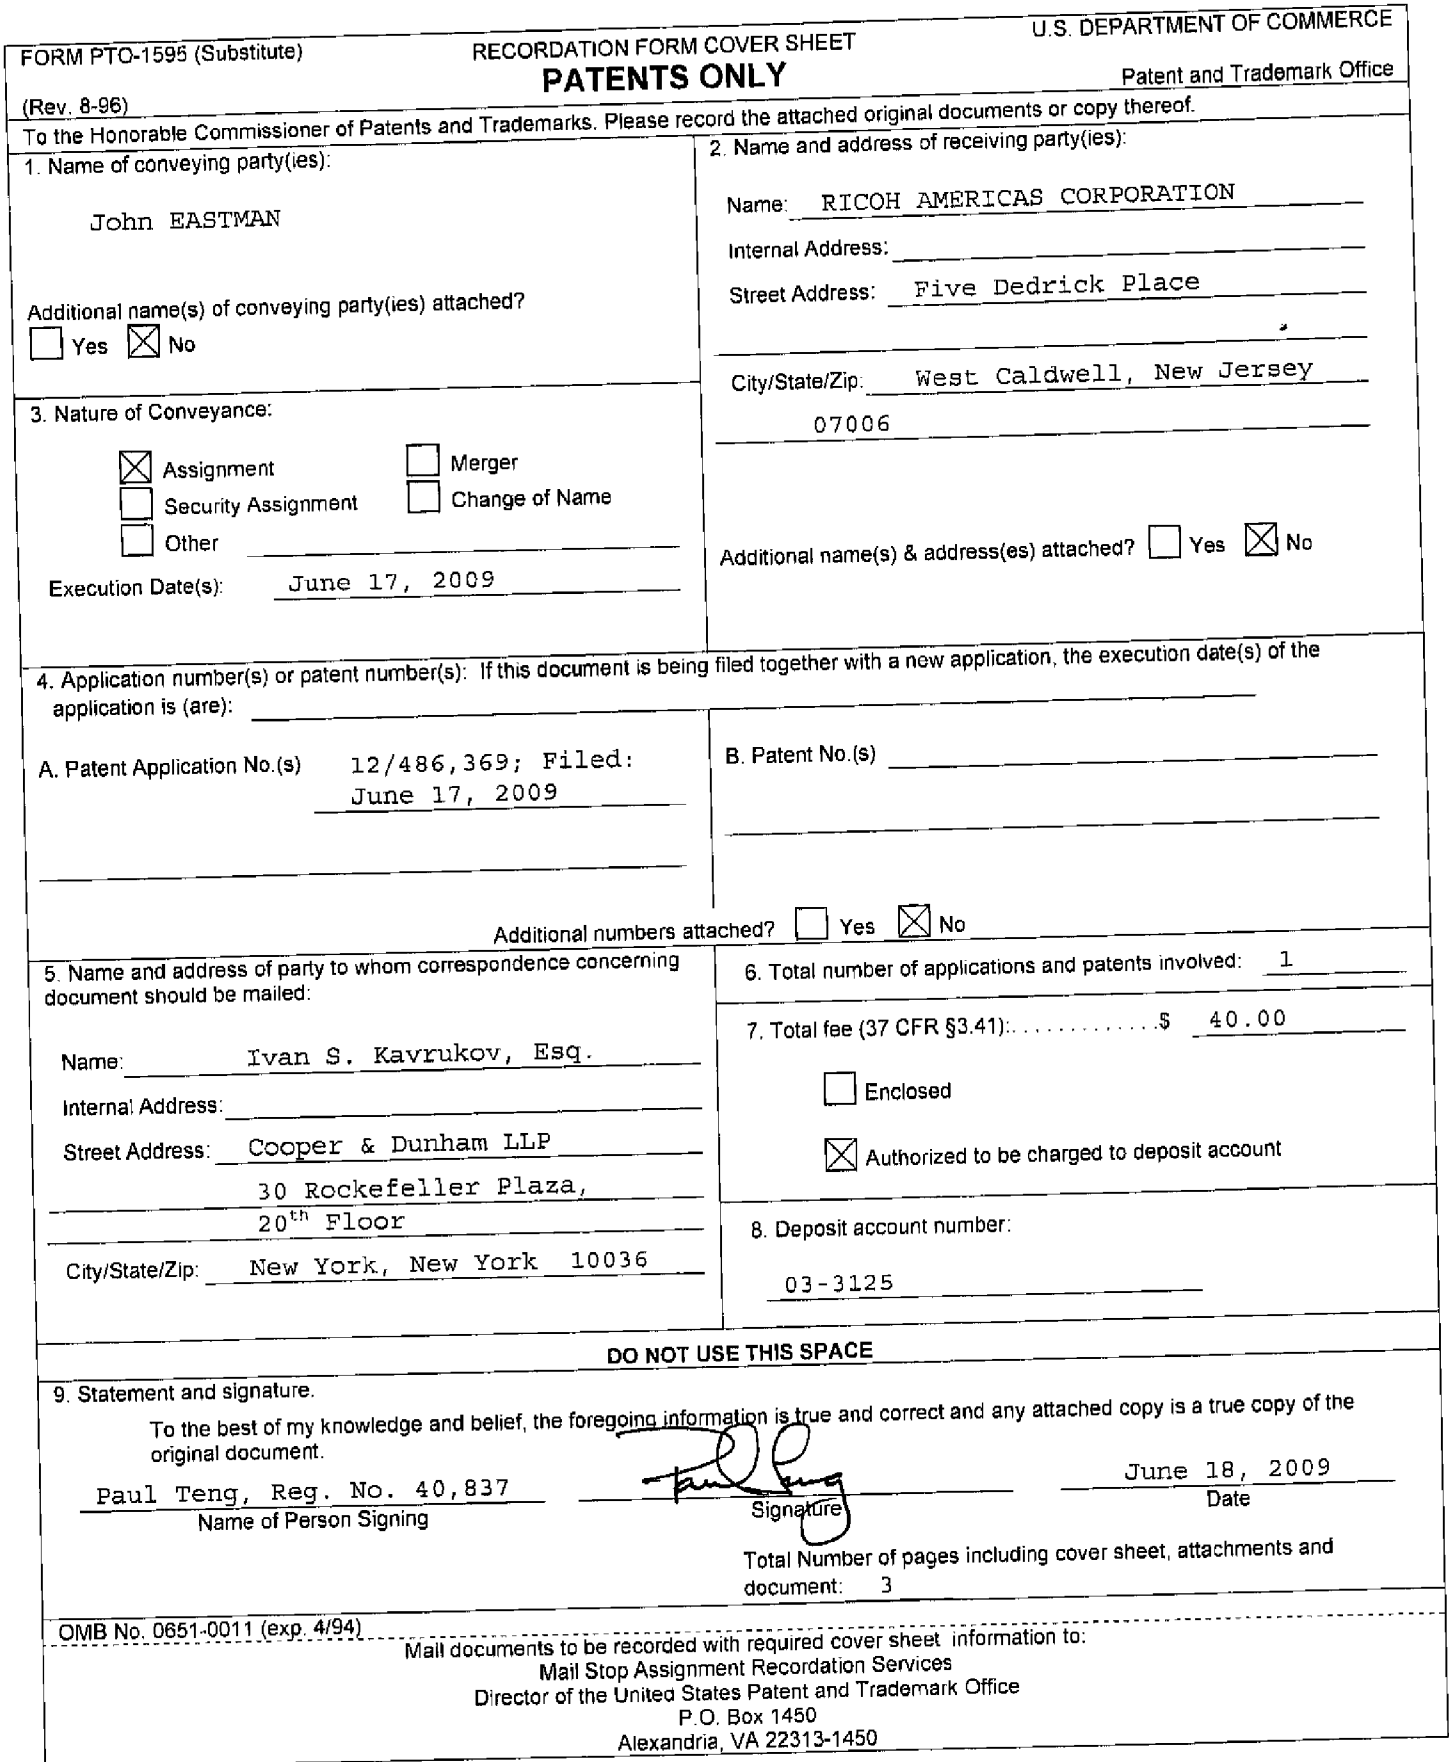 FORM PTO-1595 (Substitute)
RECORDATION FORM COVER SHEET
U.S. DEPARTMENT OF COMMERCE
PATENTS ONLY
(Rev. 8-96)
Patent and Trademark Office
To the Honorable Commissioner of Patents and Trademarks. Please record the attached original documents or copy thereof.
1. Name of conveying party(ies):
John EASTMAN
Additional name(s) of conveying party(ies) attached?
Yes No
2. Name and address of receiving party(ies):
Name: RICOH AMERICAS CORPORATION
Internal Address:
Street Address: Five Dedrick Place
City/State/Zip: West Caldwell, New Jersey
07006
Additional name(s) & address(es) attached? Yes No
3. Nature of Conveyance:
Assignment Merger
Security Assignment Change of Name
Other
Execution Date(s): June 17, 2009
4. Application number(s) or patent number(s): If this document is being filed together with a new application, the execution date(s) of the
application is (are):
A. Patent Application No.(s) 12/486,369; Filed:
June 17, 2009
B. Patent No.(s)
Additional numbers attached? Yes No
5. Name and address of party to whom correspondence concerning
document should be mailed:
Name: Ivan S. Kavrukov, Esq.
Internal Address:
Street Address: Cooper & Dunham LLP
30 Rockefeller Plaza,
20th Floor
City/State/Zip: New York, New York 10036
6. Total number of applications and patents involved: 1
7. Total fee (37 CFR §3.41):.............$ 40.00
Enclosed
Authorized to be charged to deposit account
8. Deposit account number:
03-3125
DO NOT USE THIS SPACE
9. Statement and signature.
To the best of my knowledge and belief, the foregoing information is true and correct and any attached copy is a true copy of the
original document.
Paul Teng, Reg. No. 40,837
Name of Person Signing
Paul Teng
Signature
June 18, 2009
Date
Total Number of pages including cover sheet, attachments and
document: 3
OMB No. 0651-0011 (exp. 4/94)
Mail documents to be recorded with required cover sheet information to:
Mail Stop Assignment Recordation Services
Director of the United States Patent and Trademark Office
P.O. Box 1450
Alexandria, VA 22313-1450